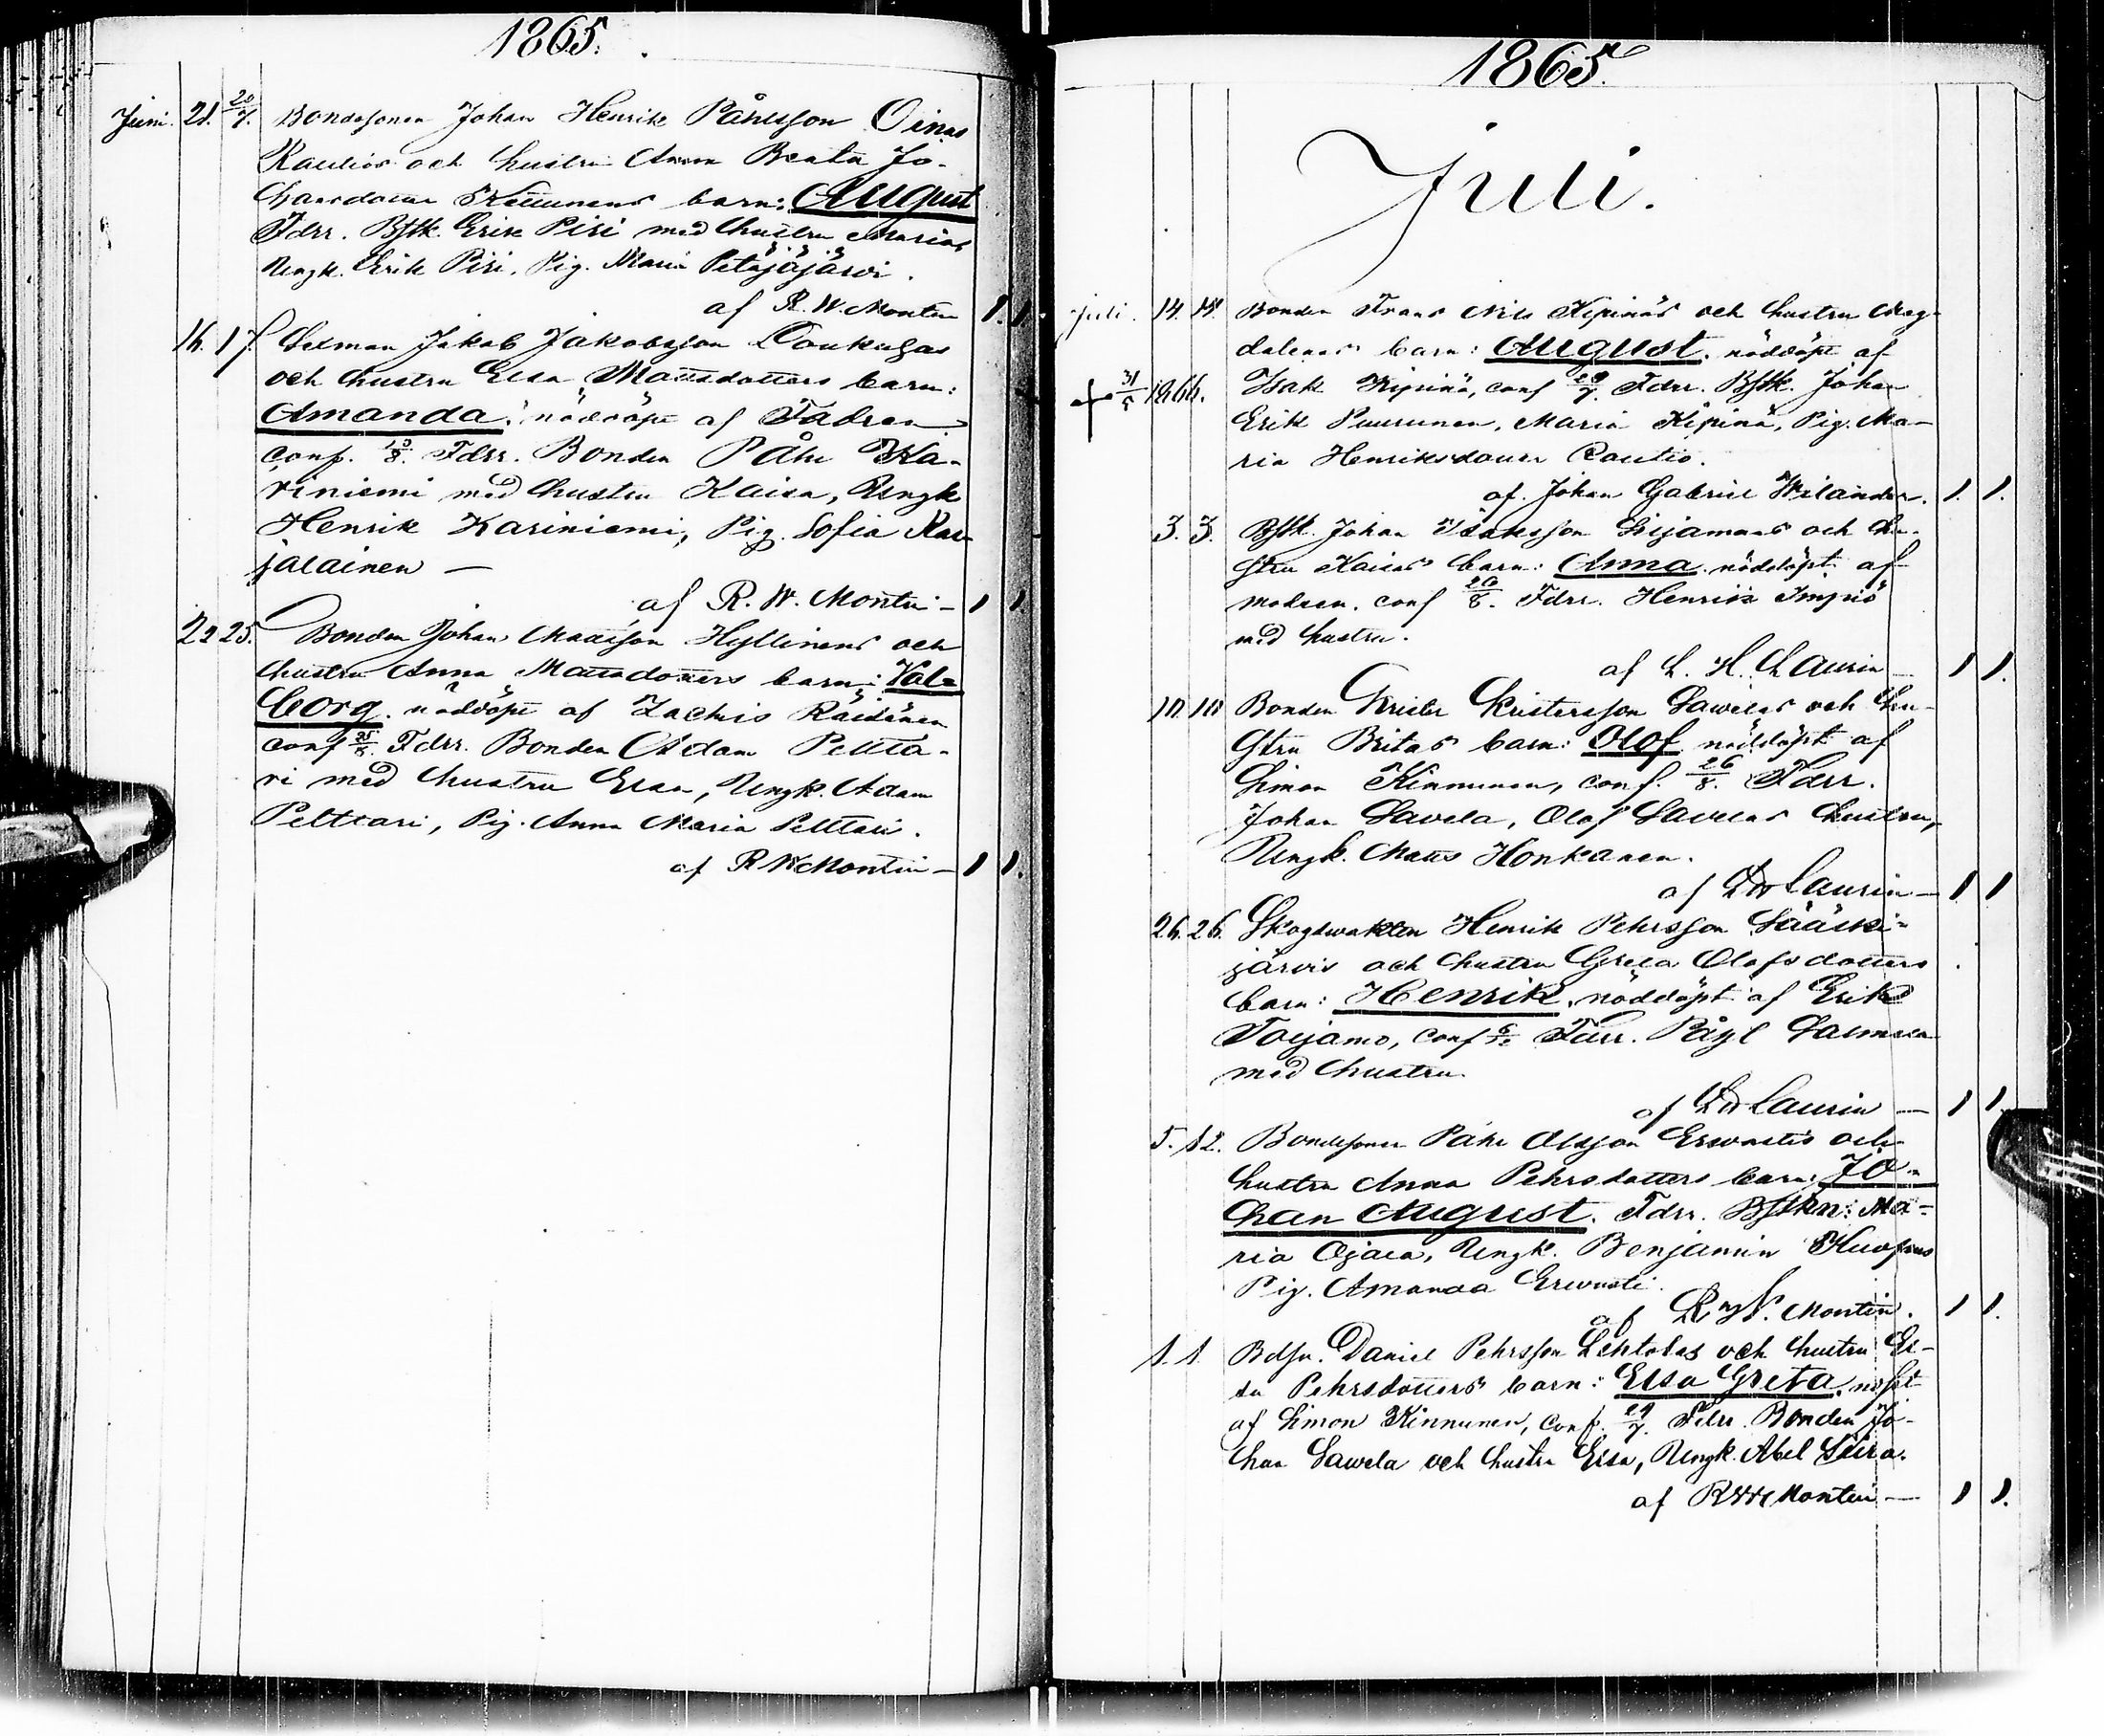 1865.
Juni. 21. 20/7. Bondesonen Johan Henrik Påhlsson Oinas
Rautios och hustru Anna Beata Jo-
hansdotter Kettunens barn: August
Fdrr. Bftk. Erik Piri med hustru Maria,
Ungk. Erik Piri, Pig. Maria Petäjäjärvi.
af R. W. Montin 1. 1.
16. 17. Sexman Jakob Jakobsson Loukusas
och hustru Elsa Mattsdotters barn:
Amanda, nöddöpt af Fadren
conf. 13/8. Fdrr. Bonden Påhl Ka-
riniemi med hustru Kaisa, Ungk
Henrik Kariniemi, Pig. Sofia Kar-
jalainen —
af R. W. Montin — 1 1.
22 25. Bonden Johan Mattsson Hyllinens och
hustru Anna Mattsdotters barn: Val-
borg. nöddöpt af Zachris Räisänen
conf 25/8. Fdrr. Bonden Adam Peltta-
ri med hustru Elsa, Ungk. Adam
Pelttari, Pig. Anna Maria Pelttari.
af R W Montin — 1 1.
1865.
Juli.
Juli. 14. 14. Bonden Frans Nils Kipinäs och hustru Mag-
dalenas barn: August. nöddöpt af
31/5 1866. Isak Kipinä, conf 29/7. Fdrr. Bftk. Johan
Erik Puurunen, Maria Kipinä, Pig. Ma-
ria Henriksdotter Rautio.
af. Johan Gabriel Welander. 1. 1.
3. 3. Bftk. Johan Isaksson Siijamaas och hu-
stru Kaisas barn: Anna. nöddöpt af
modren. conf 20/8. Fdrr. Henrik Impiö
med hustru.
af L. H. Laurin — 1 1.
10 10 Bonden Krister Kristersson Sawelas och hu-
stru Britas barn: Olof, nöddöpt af
Simon Kinnunen, conf. 26/8. Fdrr.
Johan Savela, Olof Savelas hustru,
Ungk. Matts Honkanen.
af LH Laurin — 1 1
26. 26. Skogswakten Henrik Pehrsson Sääski-
järvis och hustru Greta Olofsdotters
barn: Henrik, nöddöpt af Erik
Toijamo, conf Fdrr. Påhl Salmela
med hustru.
af LH Laurin — 1 1.
5. 12. Bondesonen Påhl Olsson Erwastis och
hustru Anna Pehrsdotters barn: Jo-
han August. Fdrr. Bftkn: Ma-
ria Ojala, Ungk. Benjamin
Pig. Amanda Erwasti.
af R. W. Montin. 1 1.
1. 1. Bdsn. Daniel Pehrsson Lehtolas och hustru El-
sa Pehrsdotters barn: Elsa Greta, nöpt
af Simon Kinnunen, conf. 29/7. Fdrr. Bonden Jo-
han Sawela och hustru Elsa, Ungk. Abel Siira.
af RW Montin — 1 1.